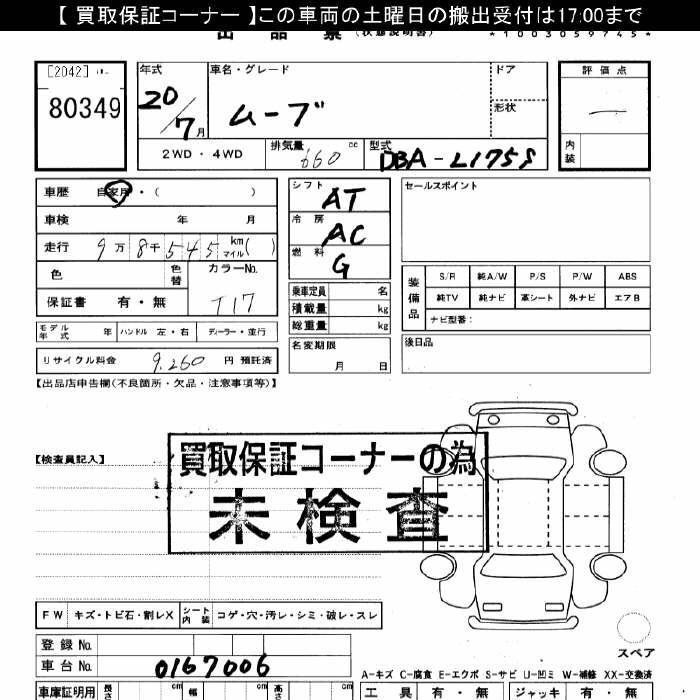 【 買取保証コーナー 】この車両の土曜日の搬出受付は17:00まで
出 品 票 (状態説明書) *1003059745*
[2042]
80349
年式 20/7月
車名・グレード ムーブ
ドア
形状
評価点
内装
2WD・4WD
排気量 660 cc
型式 DBA-L175S
車歴 自家用・( )
車検 年 月
走行 9万8千545 km マイル( )
色 色替
カラーNo. T17
保証書 有・無
シフト AT
冷房 AC
燃料 G
乗車定員 名
積載量 kg
総重量 kg
名変期限 月 日
セールスポイント
装備品
S/R 純A/W P/S P/W ABS
純TV 純ナビ 革シート 外ナビ エアB
ナビ型番:
後日品
モデル年式 年 ハンドル 左・右 ディーラー・並行
リサイクル料金 9,260 円 預託済
【出品店申告欄(不良箇所・欠品・注意事項等)】
【検査員記入】
買取保証コーナーの為
未検査
FW キズ・トビ石・割レX シート内装 コゲ・穴・汚レ・シミ・破レ・スレ
スペア
登録 No.
車台 No. 0167006
A-キズ C-腐食 E-エクボ S-サビ U-凹ミ W-補修 XX-交換済
車庫証明用 長さ cm 幅 cm 高さ cm
工具 有・無 ジャッキ 有・無